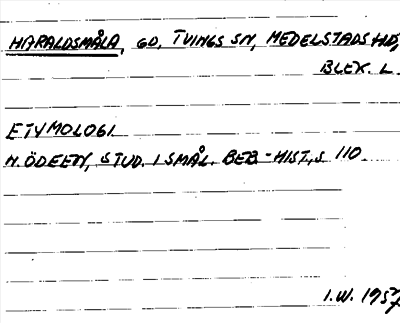 HARALDSMÅLA, GD, TVINGS SN, MEDELSTADS HD,
BLEK. L.
ETYMOLOGI
N. ÖDEEN, STUD. I SMÅL. BEB-HIST, S 110.
I.W. 1957